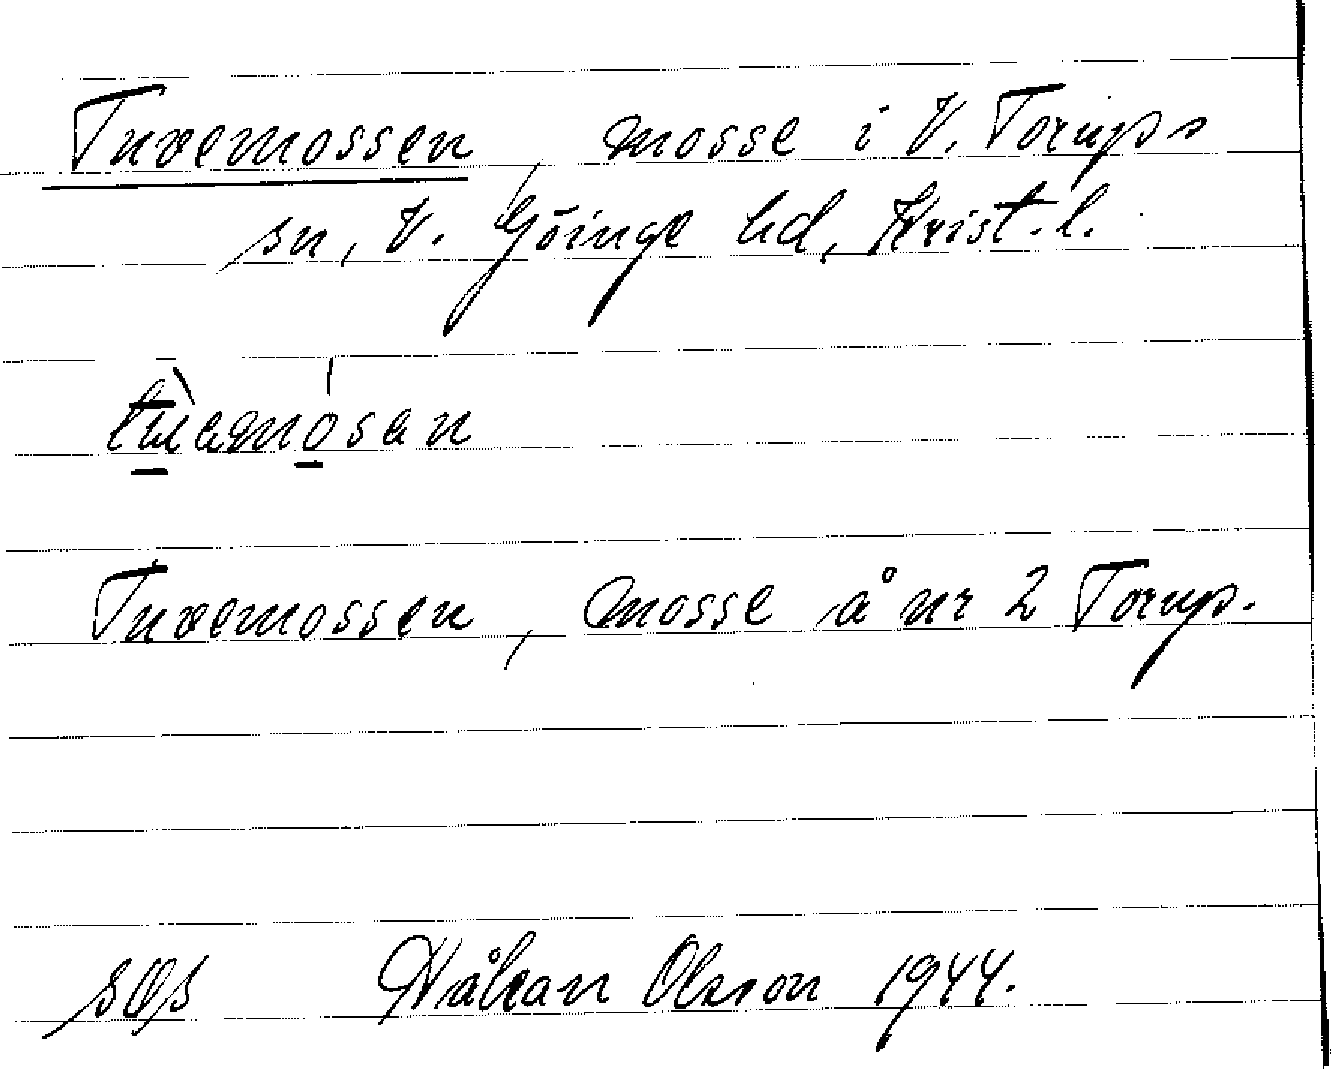 Tuvemossen, mosse i V. Torups
sn, V. Göinge hd, Krist. l.
Tuvemossen, mosse å nr 2 Torup.
Håkan Olsson 1944.